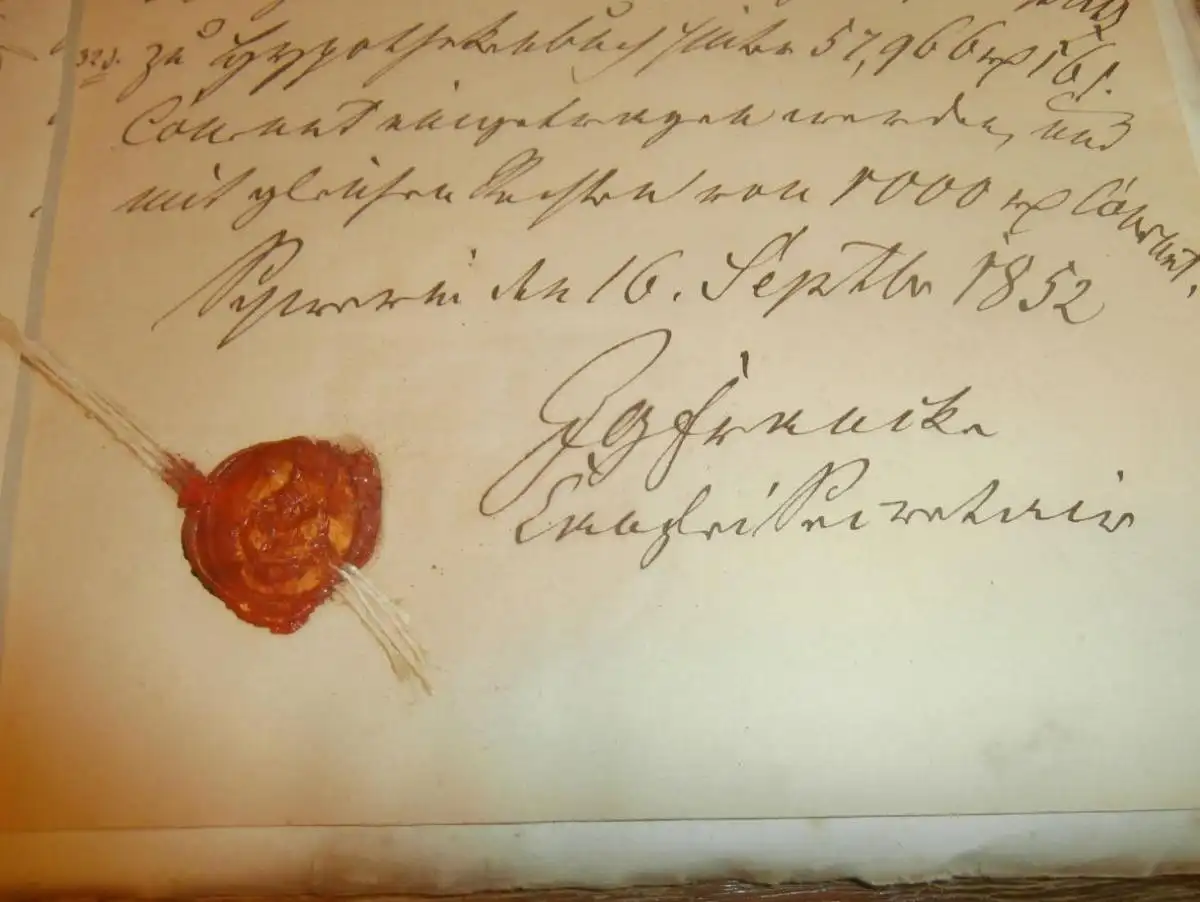 zu Hypothekenbuch hinter 57,966 rp 16 ß.
Courant eingetragen werden, und
mit gleichen Rechten von 1000 rp Courant,
Schwerin den 16. Septbr 1852
Francke
Canzlei Secretair